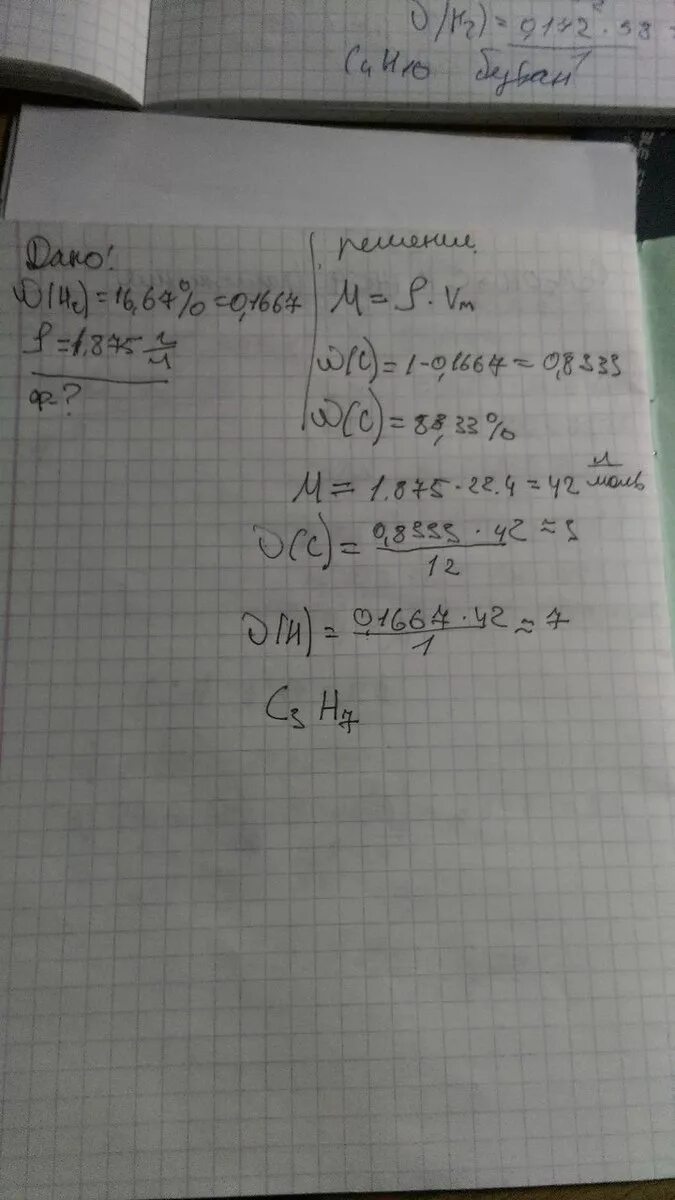 ϑ(H₂) = 0,172 · 58
C₄H₁₀ бутан
Дано!
ω(H₂) = 16,67% = 0,1667
ρ = 1.875 г/л
ф-?
решение
M = ρ · Vm
ω(C) = 1 - 0,1667 = 0,8333
ω(C) = 83,33%
M = 1.875 · 22.4 = 42 г/моль
ϑ(C) = 0,8333 · 42 / 12 ≈ 3
ϑ(H) = 0,1667 · 42 / 1 ≈ 7
C₃H₇